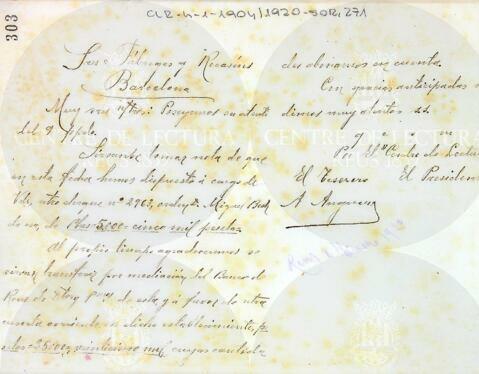 CLR-4-1-1904/1920-SOR, 271
303
Sres Fábregas y Recasens
Barcelona
Muy sres ntros: Poseemos su atenta
del 9
Sirvanse tomar nota de que
en esta fecha hemos dispuesto á cargo de
Vds, ntro cheque nº 2763, orden, Miguel
de esa, de Ptas 5.000 cinco mil pesetas.
Al propio tiempo agradeceremos se
sirvan transferir por mediación del Banco de
Reus de plaza de esta, y á favor de ntra
cuenta corriente en dicho establecimiento, pe-
setas 25.000, veinticinco mil, cuya cantidad
des abonamos en cuenta.
Con gracias anticipadas
dimos muy atentos ss.
q e m
P. el "Centro de Lectura
El Tesorero El President
A. Anguera
CENTRE DE LECTURA
REUS